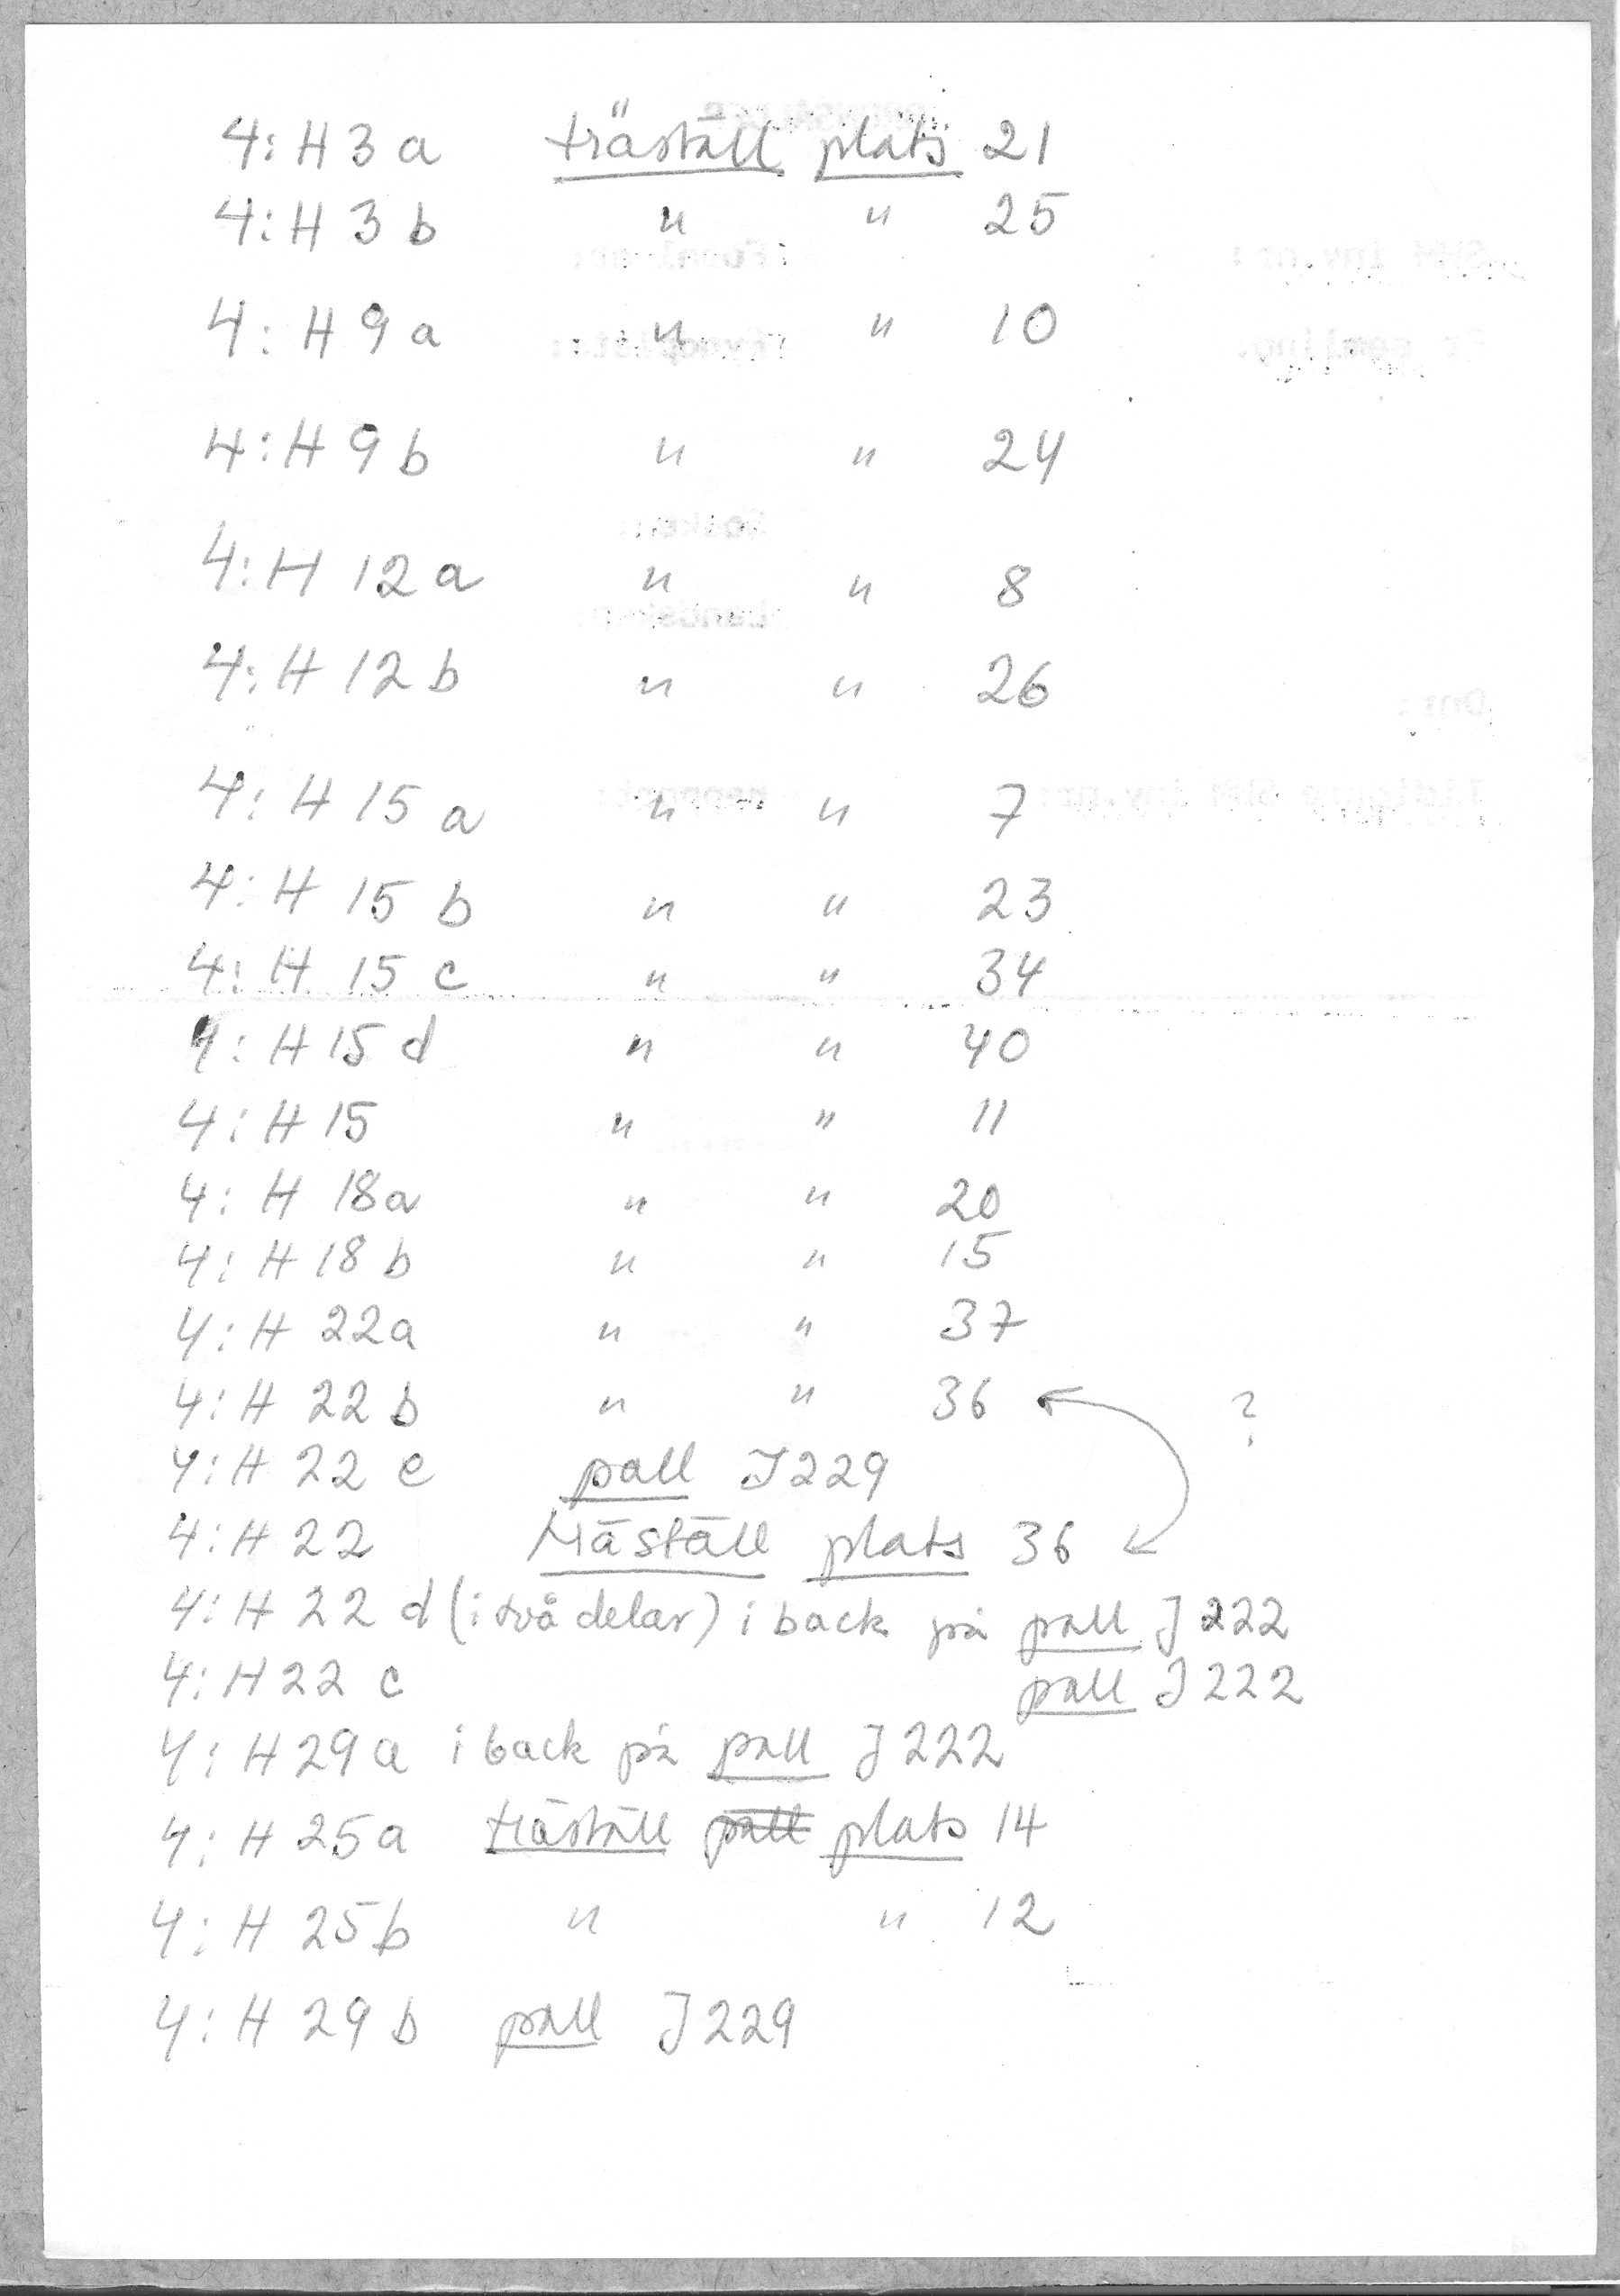 4:H 3 a träställ plats 21
4:H 3 b " " 25
4:H 9 a " " 10
4:H 9 b " " 24
4:H 12 a " " 8
4:H 12 b " " 26
4:H 15 a " " 7
4:H 15 b " " 23
4:H 15 c " " 34
4:H 15 d " " 40
4:H 15 " " 11
4:H 18a " " 20
4:H 18 b " " 15
4:H 22a " " 37
4:H 22 b " " 36 ?
4:H 22 e pall J229
4:H 22 träställ plats 36
4:H 22 d (i två delar) i back på pall J 222
4:H 22 c pall J 222
4:H 29 a i back på pall J 222
4:H 25a träställ pall plats 14
4:H 25b " " 12
4:H 29 b pall J 229